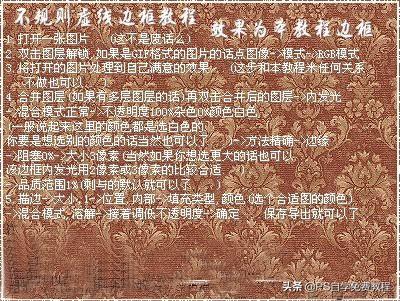 不规则虚线边框教程
效果为本教程边框
1.打开一张图片 (这不是废话么)
2.双击图层解锁,如果是GIF格式的图片的话点图像->模式->RGB模式
3.将打开的图片处理到自己满意的效果 (这步和本教程木任何关系
不做也可以 )
4.合并图层(如果有多层图层的话)再双击合并后的图层->内发光
->混合模式正常->不透明度100%杂色0%颜色白色
(一般说起来这里的颜色都是选白色的
你要是想选别的颜色的话当然也可以了 )->方法精确->边缘
->阻塞0%->大小3像素(当然如果你想选更大的话也可以
该边框内发光用2像素或3像素的比较合适 )
->品质范围1%(剩与的默认就可以了 )
5.描边->大小,1->位置,内部->填充类型,颜色(选个合适图的颜色)
->混合模式,溶解->接着调低不透明度->确定 保存导出就可以了
头条 @PS自学免费教程